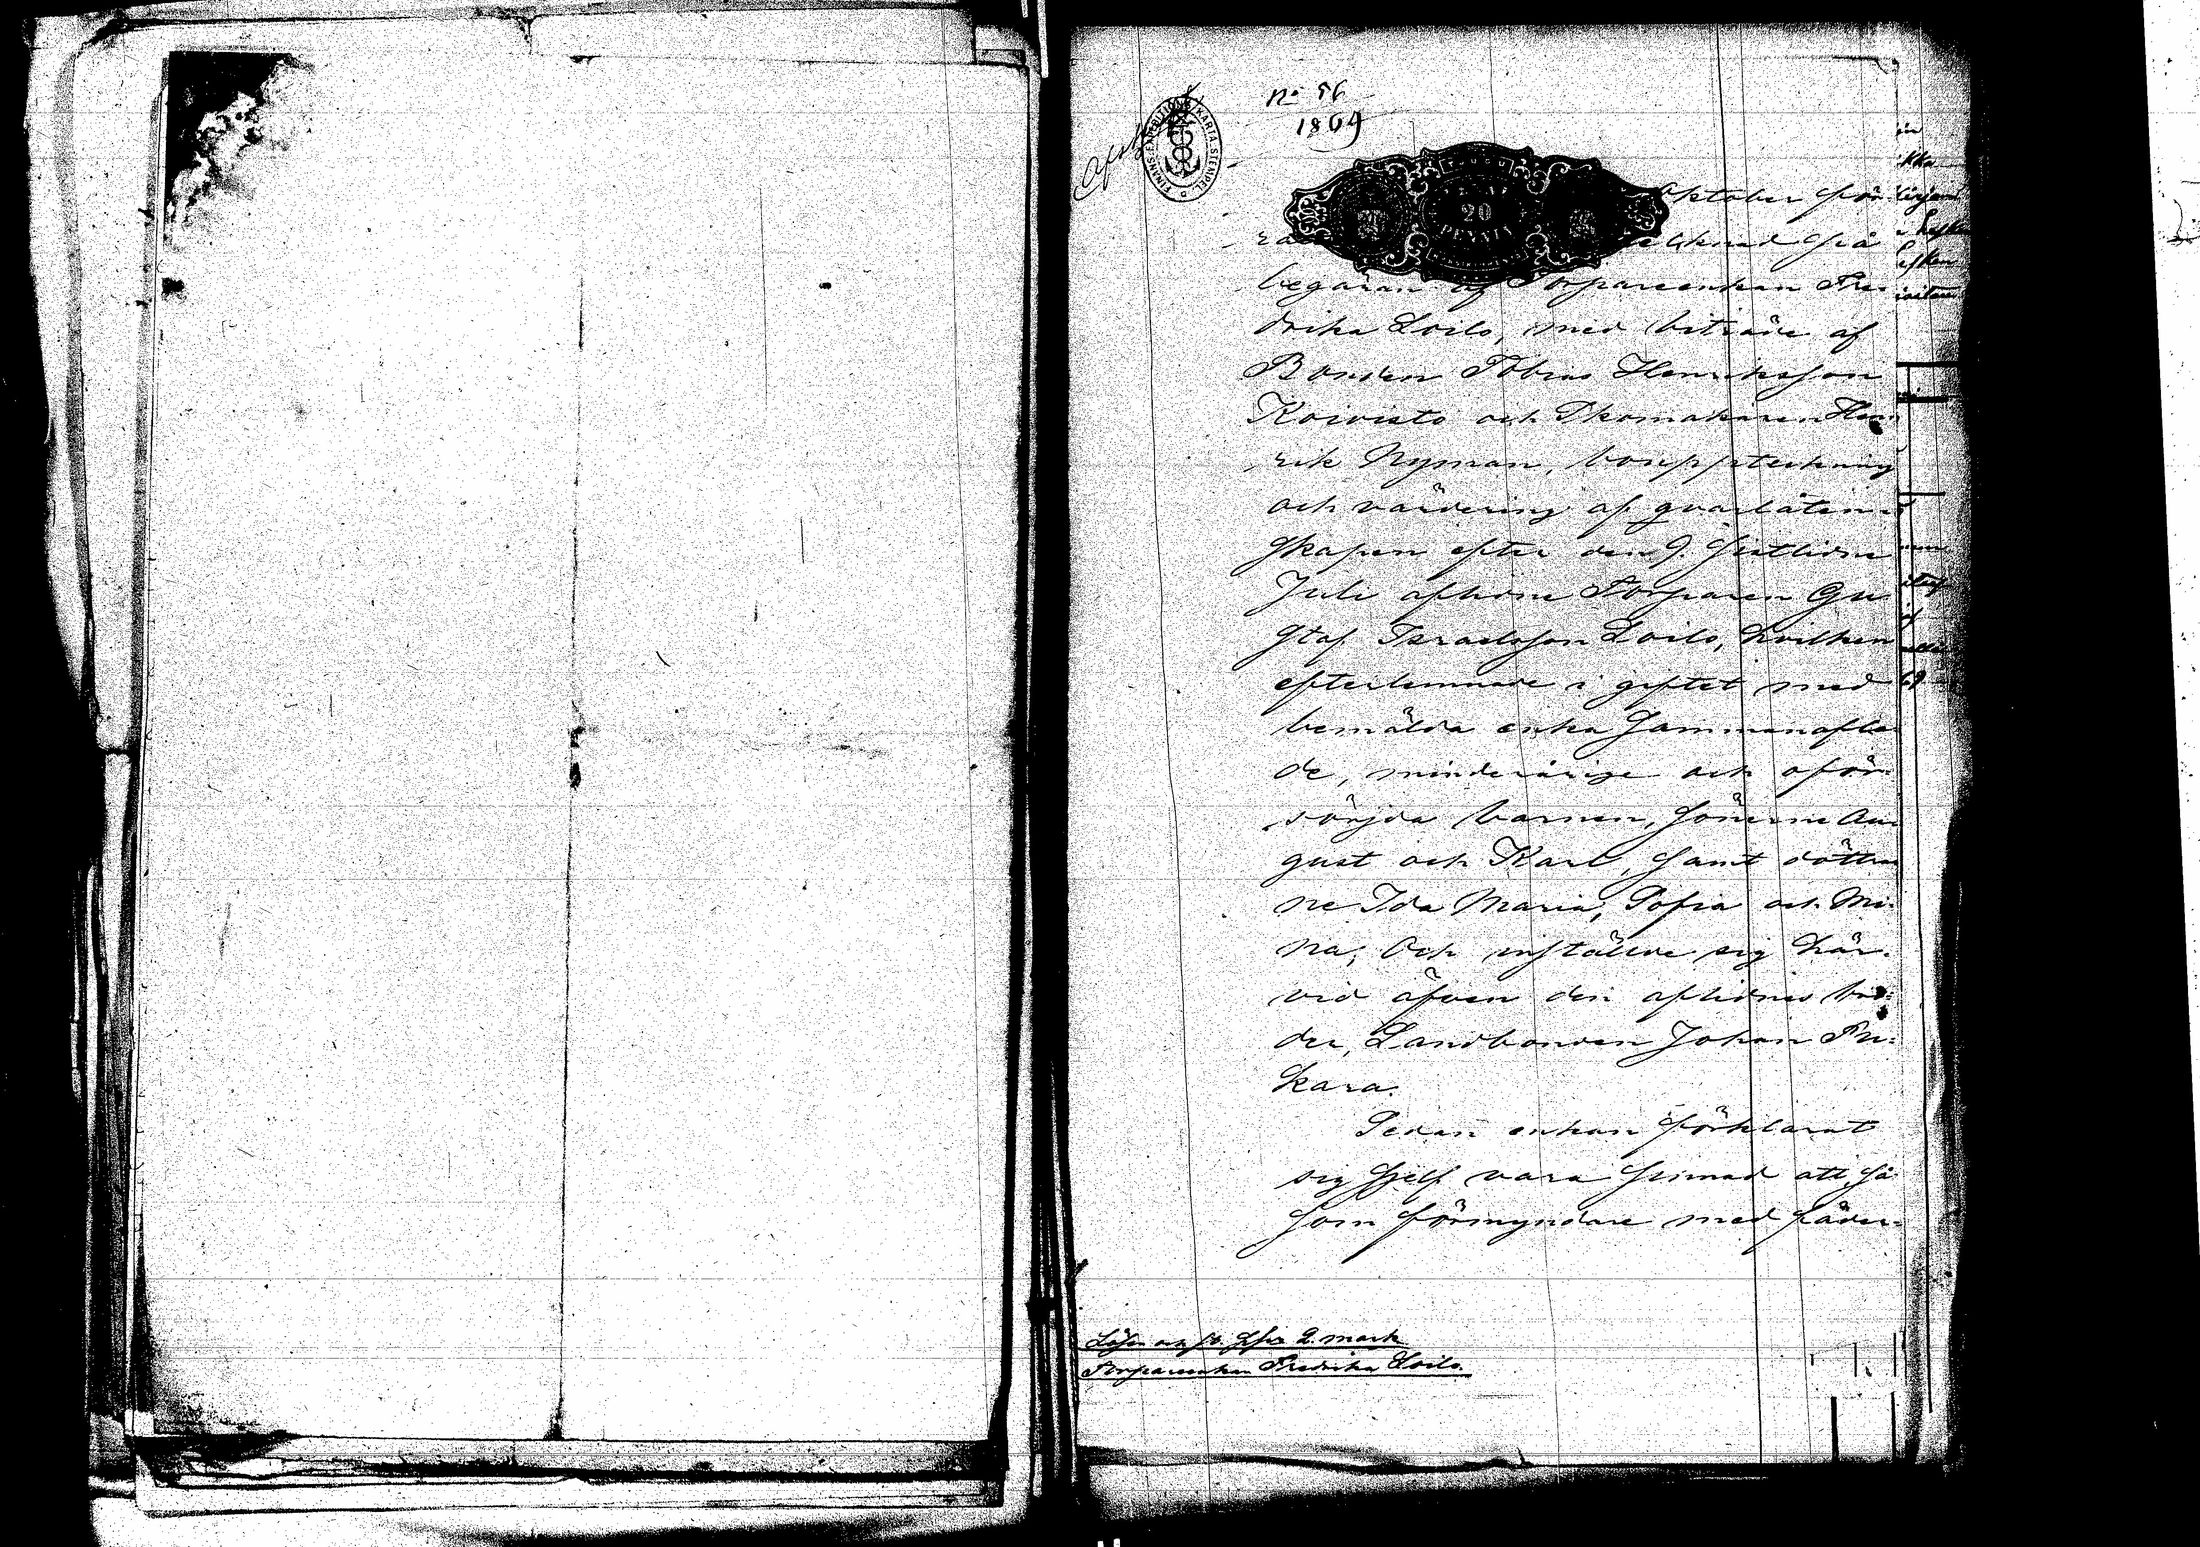 No 56
1869
Afskr
FINANS EXPEDITIONS KARTA STEMPEL
20
PENNIÄ
Oktober för
rä tecknad på
begäran af Torpareenkan Fre-
drika Loilo, med biträde af
Bonden Tobias Henriksson
Koivisto och Skomakaren Hen-
rik Nyman, bouppteckning
och värdering af qvarlåten-
skapen efter den 9. sistlidne
Juli aflidne Torparen Gu-
staf Israelsson Loilo, hvilken
efterlemnade i giftet med
bemälda enka sammanafla-
de, minderårige och oför-
sörjda barnen, sönerne Au-
gust och Karl, samt döttrar-
ne Ida Maria, Sofia och Mi-
na; Och inställde sig här-
vid äfven den aflidnes bro-
der, Landbonden Johan Pu-
kara.
Sedan enkan förklarat
sig sjelf vara sinnad att, så-
som förmyndare med fäder-
Lösen 2 mark
Torpareenkan Fredrika Loilo.